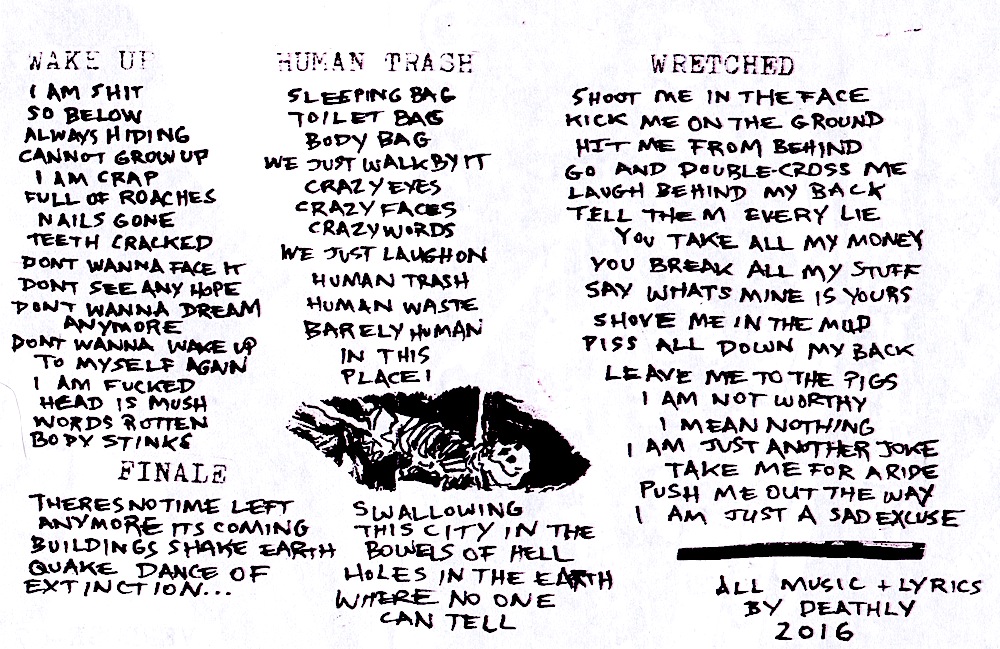 WAKE UP
I AM SHIT
SO BELOW
ALWAYS HIDING
CANNOT GROW UP
I AM CRAP
FULL OF ROACHES
NAILS GONE
TEETH CRACKED
DONT WANNA FACE IT
DONT SEE ANY HOPE
DONT WANNA DREAM
ANYMORE
DONT WANNA WAKE UP
TO MYSELF AGAIN
I AM FUCKED
HEAD IS MUSH
WORDS ROTTEN
BODY STINKS
HUMAN TRASH
SLEEPING BAG
TOILET BAG
BODY BAG
WE JUST WALK BY IT
CRAZY EYES
CRAZY FACES
CRAZY WORDS
WE JUST LAUGH ON
HUMAN TRASH
HUMAN WASTE
BARELY HUMAN
IN THIS
PLACE!
WRETCHED
SHOOT ME IN THE FACE
KICK ME ON THE GROUND
HIT ME FROM BEHIND
GO AND DOUBLE-CROSS ME
LAUGH BEHIND MY BACK
TELL THEM EVERY LIE
YOU TAKE ALL MY MONEY
YOU BREAK ALL MY STUFF
SAY WHATS MINE IS YOURS
SHOVE ME IN THE MUD
PISS ALL DOWN MY BACK
LEAVE ME TO THE PIGS
I AM NOT WORTHY
I MEAN NOTHING
I AM JUST ANOTHER JOKE
TAKE ME FOR A RIDE
PUSH ME OUT THE WAY
I AM JUST A SAD EXCUSE
FINALE
THERES NO TIME LEFT
ANYMORE ITS COMING
BUILDINGS SHAKE EARTH
QUAKE DANCE OF
EXTINCTION...
SWALLOWING
THIS CITY IN THE
BOWELS OF HELL
HOLES IN THE EARTH
WHERE NO ONE
CAN TELL
ALL MUSIC + LYRICS
BY DEATHLY
2016